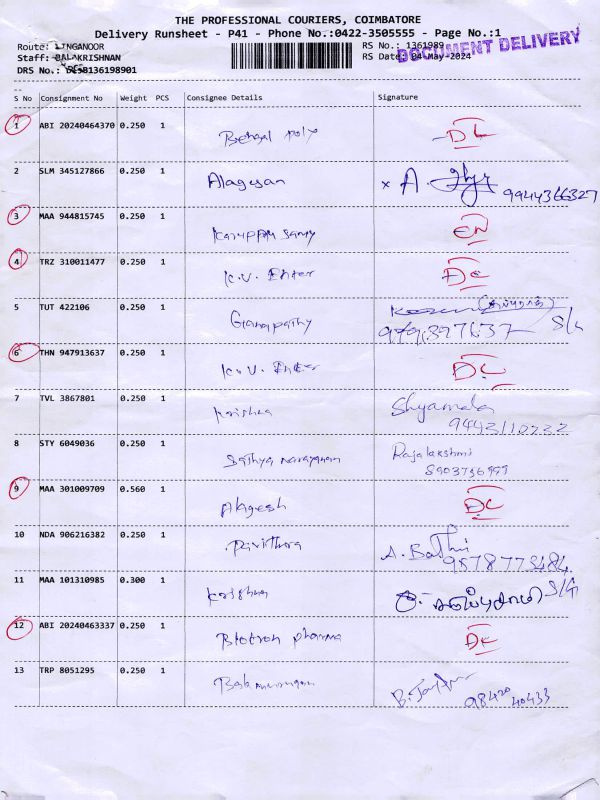 THE PROFESSIONAL COURIERS, COIMBATORE
Delivery Runsheet - P41 - Phone No.:0422-3505555 - Page No.:1
Route: LINGANOOR RS No.: 1361989
Staff: BALAKRISHNAN RS Date: 04-May-2024
DOCUMENT DELIVERY
DRS No.:
S No Consignment No Weight PCS Consignee Details Signature
1 ABI 20240464370 0.250 1 Bengal poly DL
2 SLM 345127866 0.250 1 Alagesan x A. 9944366327
3 MAA 944815745 0.250 1 Karuppu samy EN
4 TRZ 310011477 0.250 1 K.V. Enter
5 TUT 422106 0.250 1 Ganapathy S/L
6 THN 947913637 0.250 1 K.V. Enter DL
7 TVL 3867801 0.250 1 Krishna Shyamala
9443110232
8 STY 6049036 0.250 1 Sathya narayanan Rajalakshmi
9 MAA 301009709 0.560 1 Alagesh
10 NDA 906216382 0.250 1 Pavithra A. Bathi
11 MAA 101310985 0.300 1 Krishna
12 ABI 20240463337 0.250 1 Biotron pharma
13 TRP 8051295 0.250 1 Balamurugan B.
98420 40433